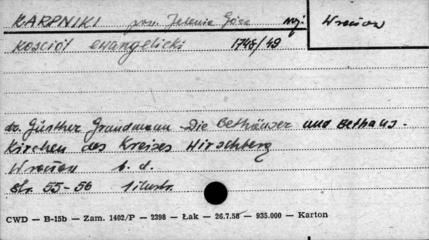 KARPNIKI pow. Jelenia Góra woj: Wrocław
Kościół ewangelicki 1748/49
dr. Günther Grundmann Die Bethäuser und Bethaus-
Kirchen des Kreises Hirschberg
Wrocław b. d.
str. 55-56 1 ilustr.
CWD — B-15b — Zam. 1402/P — 2398 — Łak — 26.7.58 — 935.000 — Karton